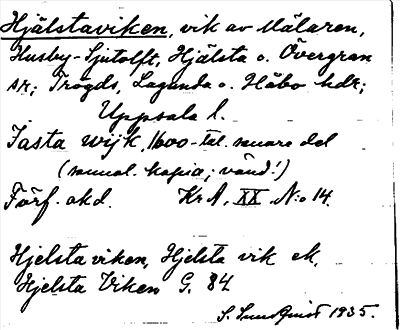 Hjälstaviken, vik av Mälaren,
Husby-Sjutolft, Hjälsta o. Övergran
sr; Trögds, Lagunda o. Håbo hdr;
Uppsala l.
Jasta wijk, 1600-tal. senare del
(samml. kopia; vänd!)
Förf. okd. KrA, XX N:o 14.
Hjelsta viken, Hjelsta vik ek,
Hjelsta Viken G. 84
S. Sundquist 1935.